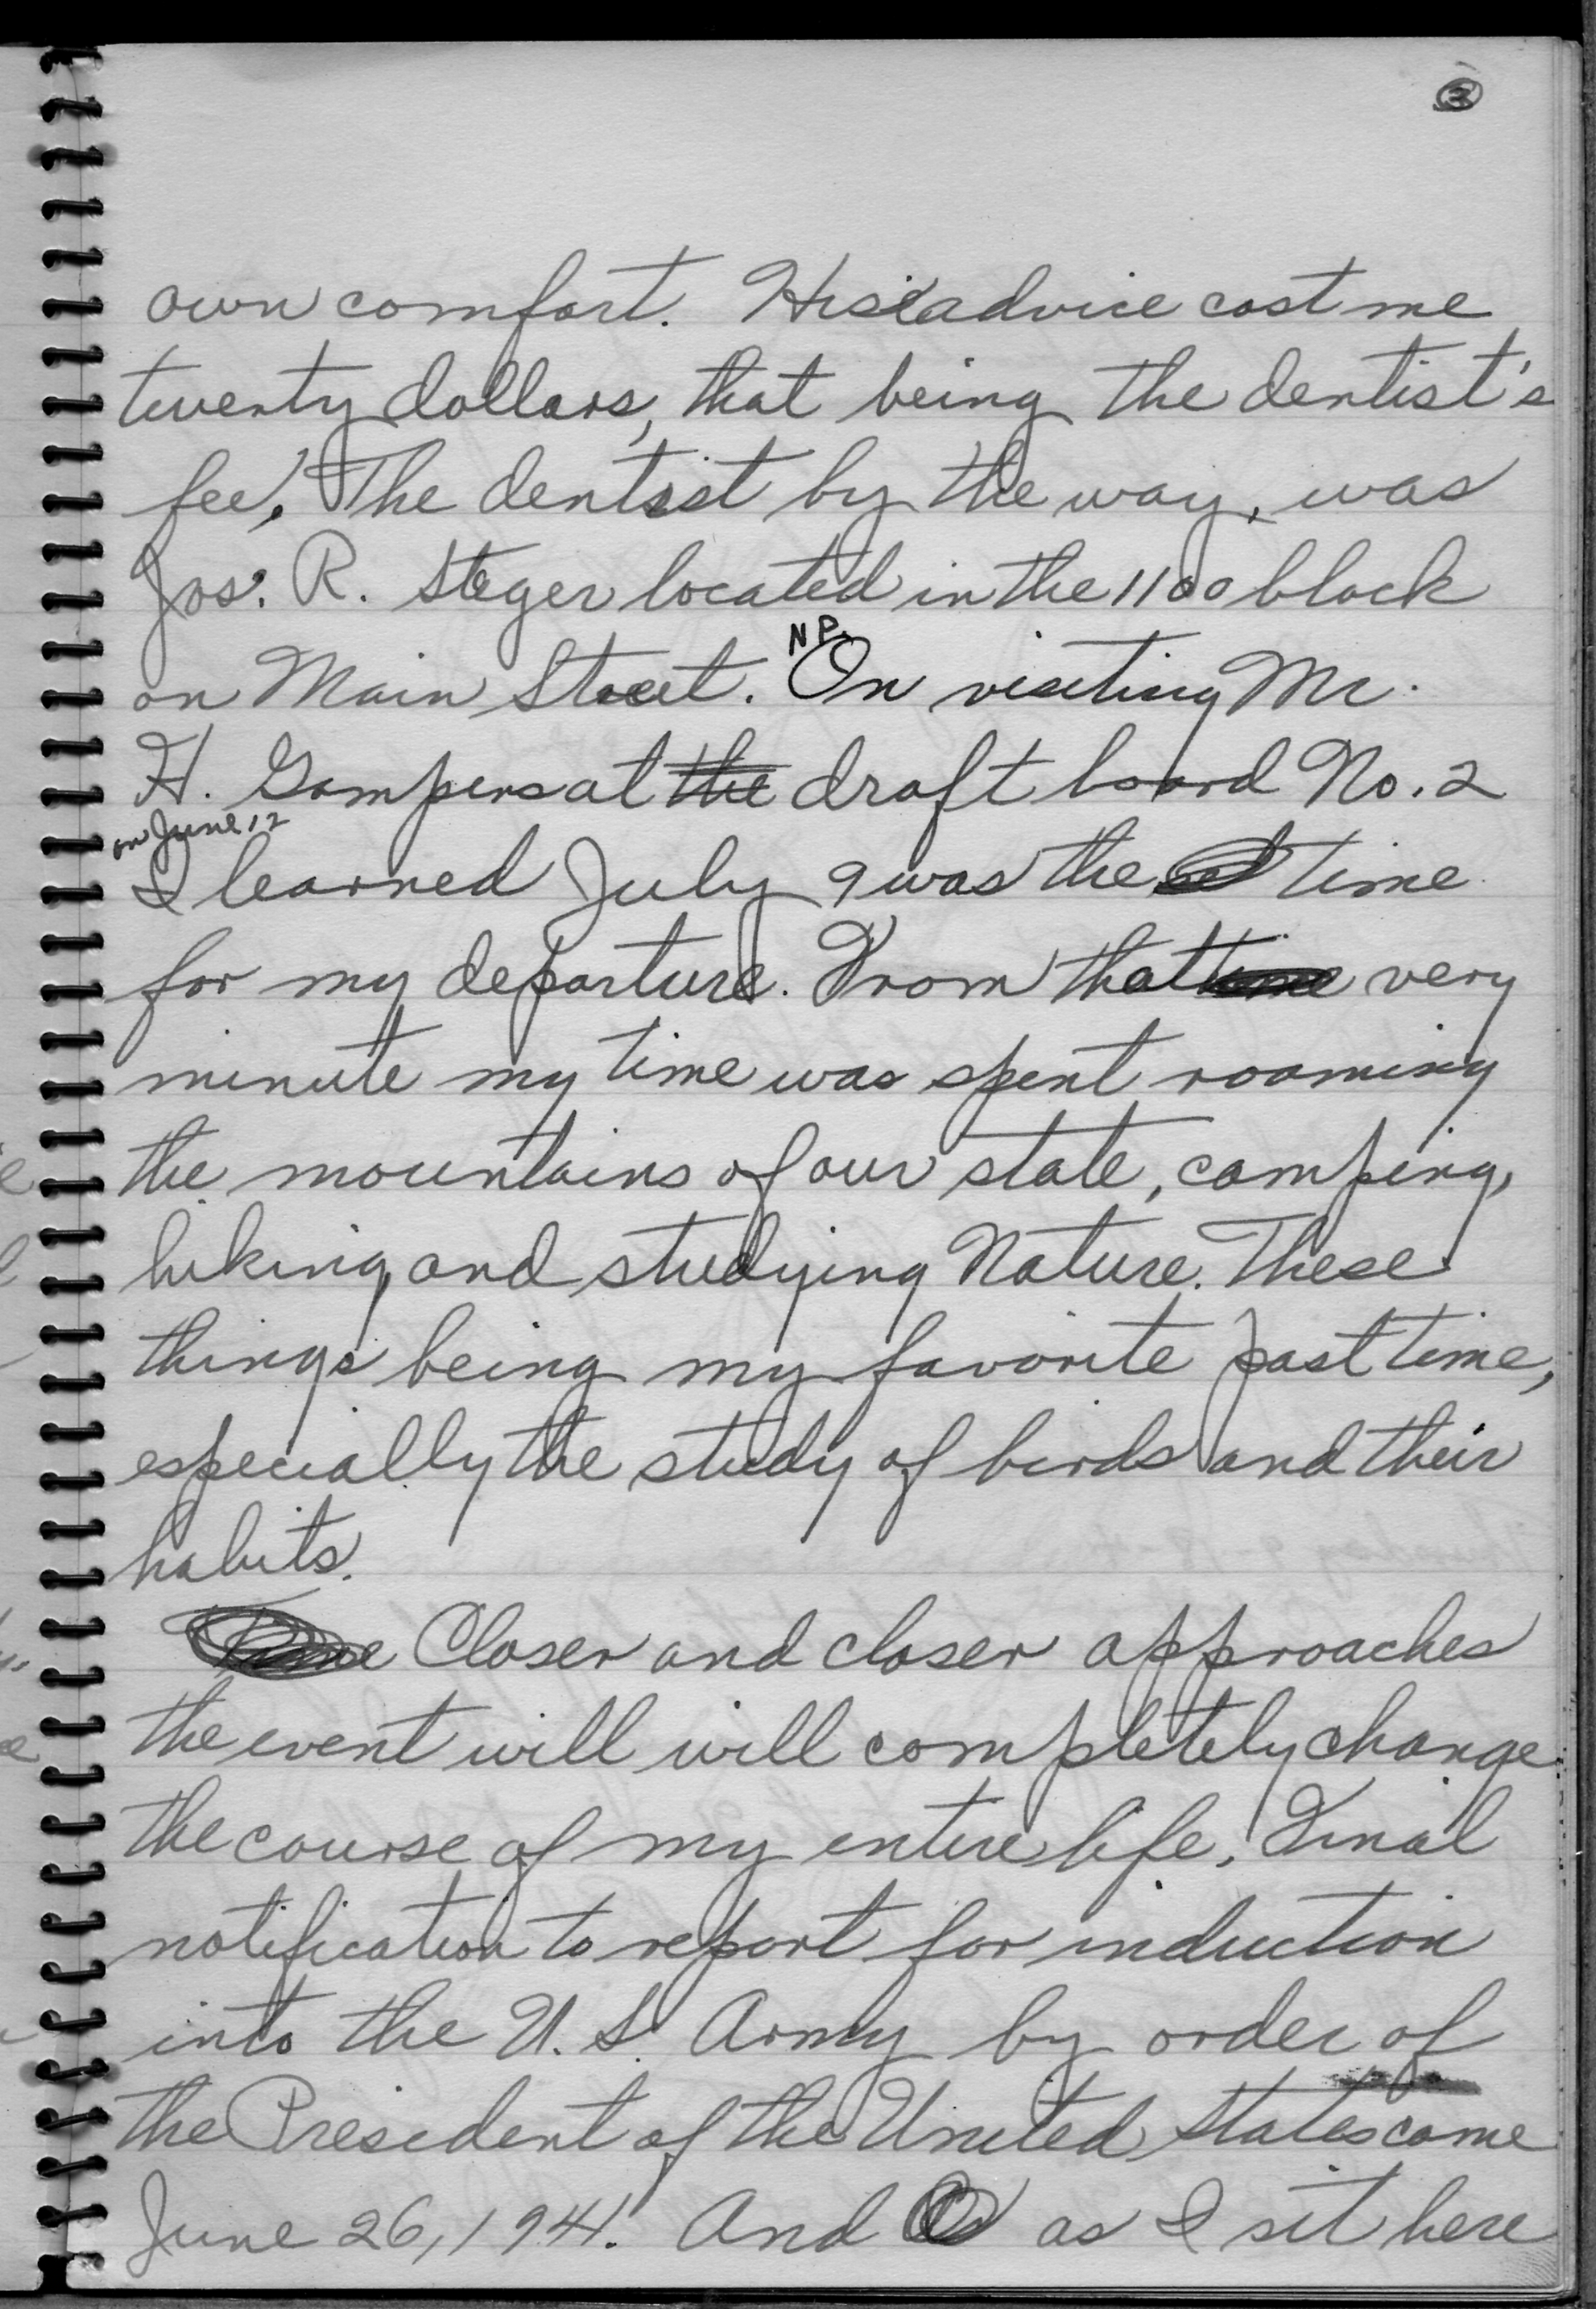 ③
own comfort. His advice cost me
twenty dollars, that being the dentist's
fee. The dentist by the way, was
Jos. R. Steger located in the 1100 block
on Main Street. NP. On visiting Mr.
H. Gompers at the draft board No. 2
on June 12
I learned July 9 was the time
for my departure. From that time very
minute my time was spent roaming
the mountains of our state, camping,
hiking, and studying Nature. These
things being my favorite past time,
especially the study of birds and their
habits.
Time Closer and closer approaches
the event will will completely change
the course of my entire life. Final
notification to report for induction
into the U.S. Army by order of
the President of the United States came
June 26, 1941. And as I sit here